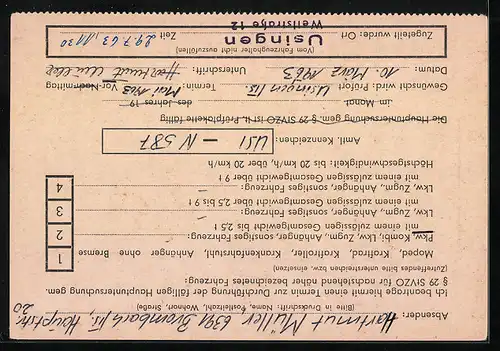 Absender: Hartmut Müller, 6391 Brombach/Ts, Hauptstr. 20
(Bitte in Druckschrift: Name, Postleitzahl, Wohnort, Straße)
Ich beantrage hiermit einen Termin zur Durchführung der fälligen Hauptuntersuchung gem.
§ 29 StVZO für nachstehend näher bezeichnetes Fahrzeug:
(Zutreffendes bitte unterstreichen bzw. einsetzen)
Moped, Kraftrad, Kraftroller, Krankenfahrstuhl, Anhänger ohne Bremse 1
Pkw, Kombi, Lkw, Zugm., Anhänger, sonstiges Fahrzeug:
mit einem zulässigen Gesamtgewicht bis 2,5 t 2
Lkw, Zugm., Anhänger, sonstiges Fahrzeug:
mit einem zulässigen Gesamtgewicht über 2,5 bis 9 t 3
Lkw, Zugm., Anhänger, sonstiges Fahrzeug:
mit einem zulässigen Gesamtgewicht über 9 t 4
Höchstgeschwindigkeit: bis 20 km/h, über 20 km/h
Amtl. Kennzeichen: USI – N 587
Die Hauptuntersuchung gem. § 29 StVZO ist lt. Prüfplakette fällig
im Monat des Jahres 19
Gewünscht wird: Prüfort: Usingen/Ts. Termin: Mai 1963 Vor-Nachmittag
Datum: 10. März 1963 Unterschrift: Hartmut Müller
(Vom Fahrzeughalter nicht auszufüllen)
Zugeteilt wurde: Ort Usingen Zeit 29.7.63, 11 30
Weilstraße 12